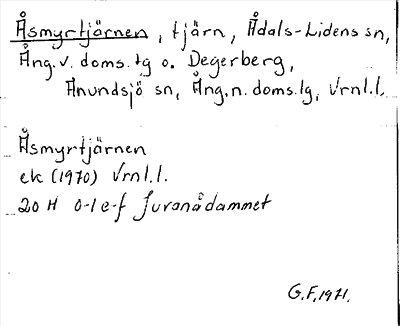 Åsmyrtjärnen, tjärn, Ådals-Lidens sn,
Ång. v. doms.tg o. Degerberg,
Anundsjö sn, Ång. n. doms.tg, Vrnl.l.
Åsmyrtjärnen
ek (1970) Vrnl.l.
20 H 0-1 e-f Juvanådammet
G.F. 1971.